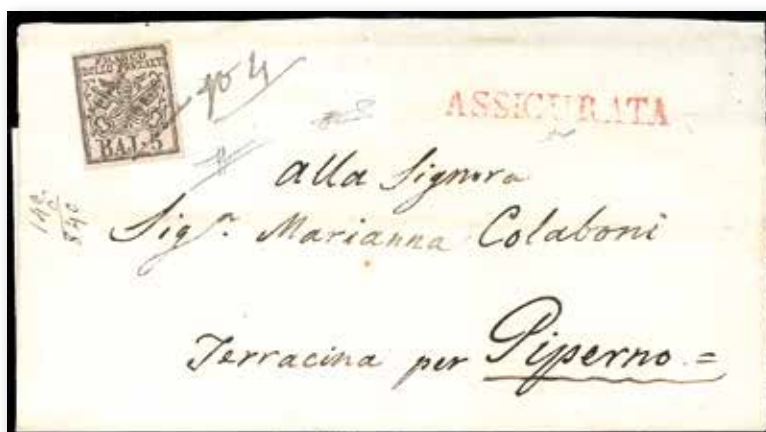 FRANCO
BOLLO POSTALE
BAJ. 5
ASSICURATA
alla Signora
Sig.ra Marianna Colaboni
Terracina per Piperno =